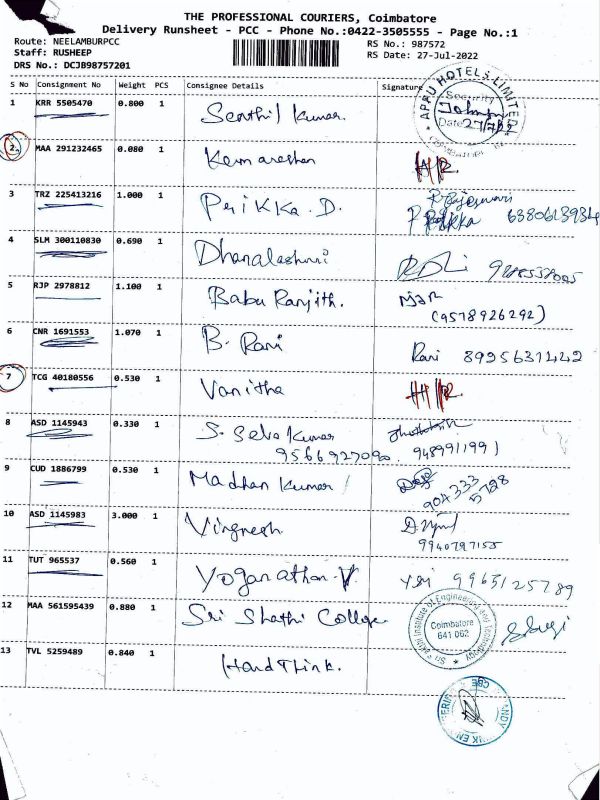 THE PROFESSIONAL COURIERS, Coimbatore
Delivery Runsheet - PCC - Phone No.:0422-3505555 - Page No.:1
Route: NEELAMBURPCC RS No.: 987572
Staff: RUSHEEP RS Date: 27-Jul-2022
DRS No.: DCJB98757201
S No Consignment No Weight PCS Consignee Details Signature
APPU HOTELS LIMITED
Security
Date 27/7/22
1 KRR 5505470 0.800 1 Senthil Kumar.
2. MAA 291232465 0.080 1 Kamareshan
3 TRZ 225413216 1.000 1 Prikka. D. R. Rajeswari
6380613934
4 SLM 300110830 0.690 1 Dhanalashmi
5 RJP 2978812 1.100 1 Babu Ranjith.
(9578926292)
6 CNR 1691553 1.070 1 B. Rani Rani 8995631442
7 TCG 40180556 0.530 1 Vanitha
8 ASD 1145943 0.330 1 S. Selva Kumar
9566927090. 9489911991
9 CUD 1886799 0.530 1 Madhan Kumar
904333
5728
10 ASD 1145983 3.000 1 Vingnesh
9940797155
11 TUT 965537 0.560 1 Yoganathan.V 9965125789
12 MAA 561595439 0.880 1 Sri Shathi College
Institute of Engineering and Technology
Coimbatore
641 062
13 TVL 5259489 0.840 1 Hand Think.
CBE